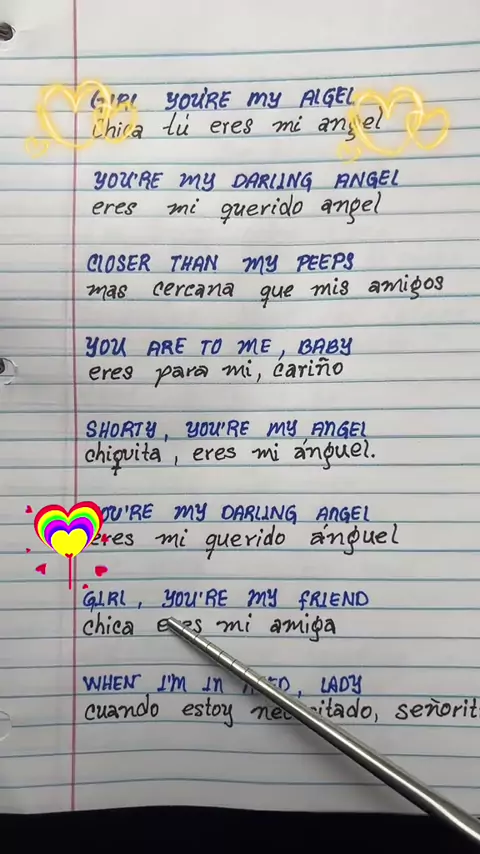 GIRL YOU'RE MY ALGEL
chica tú eres mi angel
YOU'RE MY DARLING ANGEL
eres mi querido angel
CLOSER THAN MY PEEPS
mas cercana que mis amigos
YOU ARE TO ME, BABY
eres para mi, cariño
SHORTY, YOU'RE MY ANGEL
chiquita, eres mi ánguel.
YOU'RE MY DARLING ANGEL
eres mi querido ánguel
GIRL, YOU'RE MY FRIEND
chica eres mi amiga
WHEN I'M IN NEED, LADY
cuando estoy necesitado, señorit